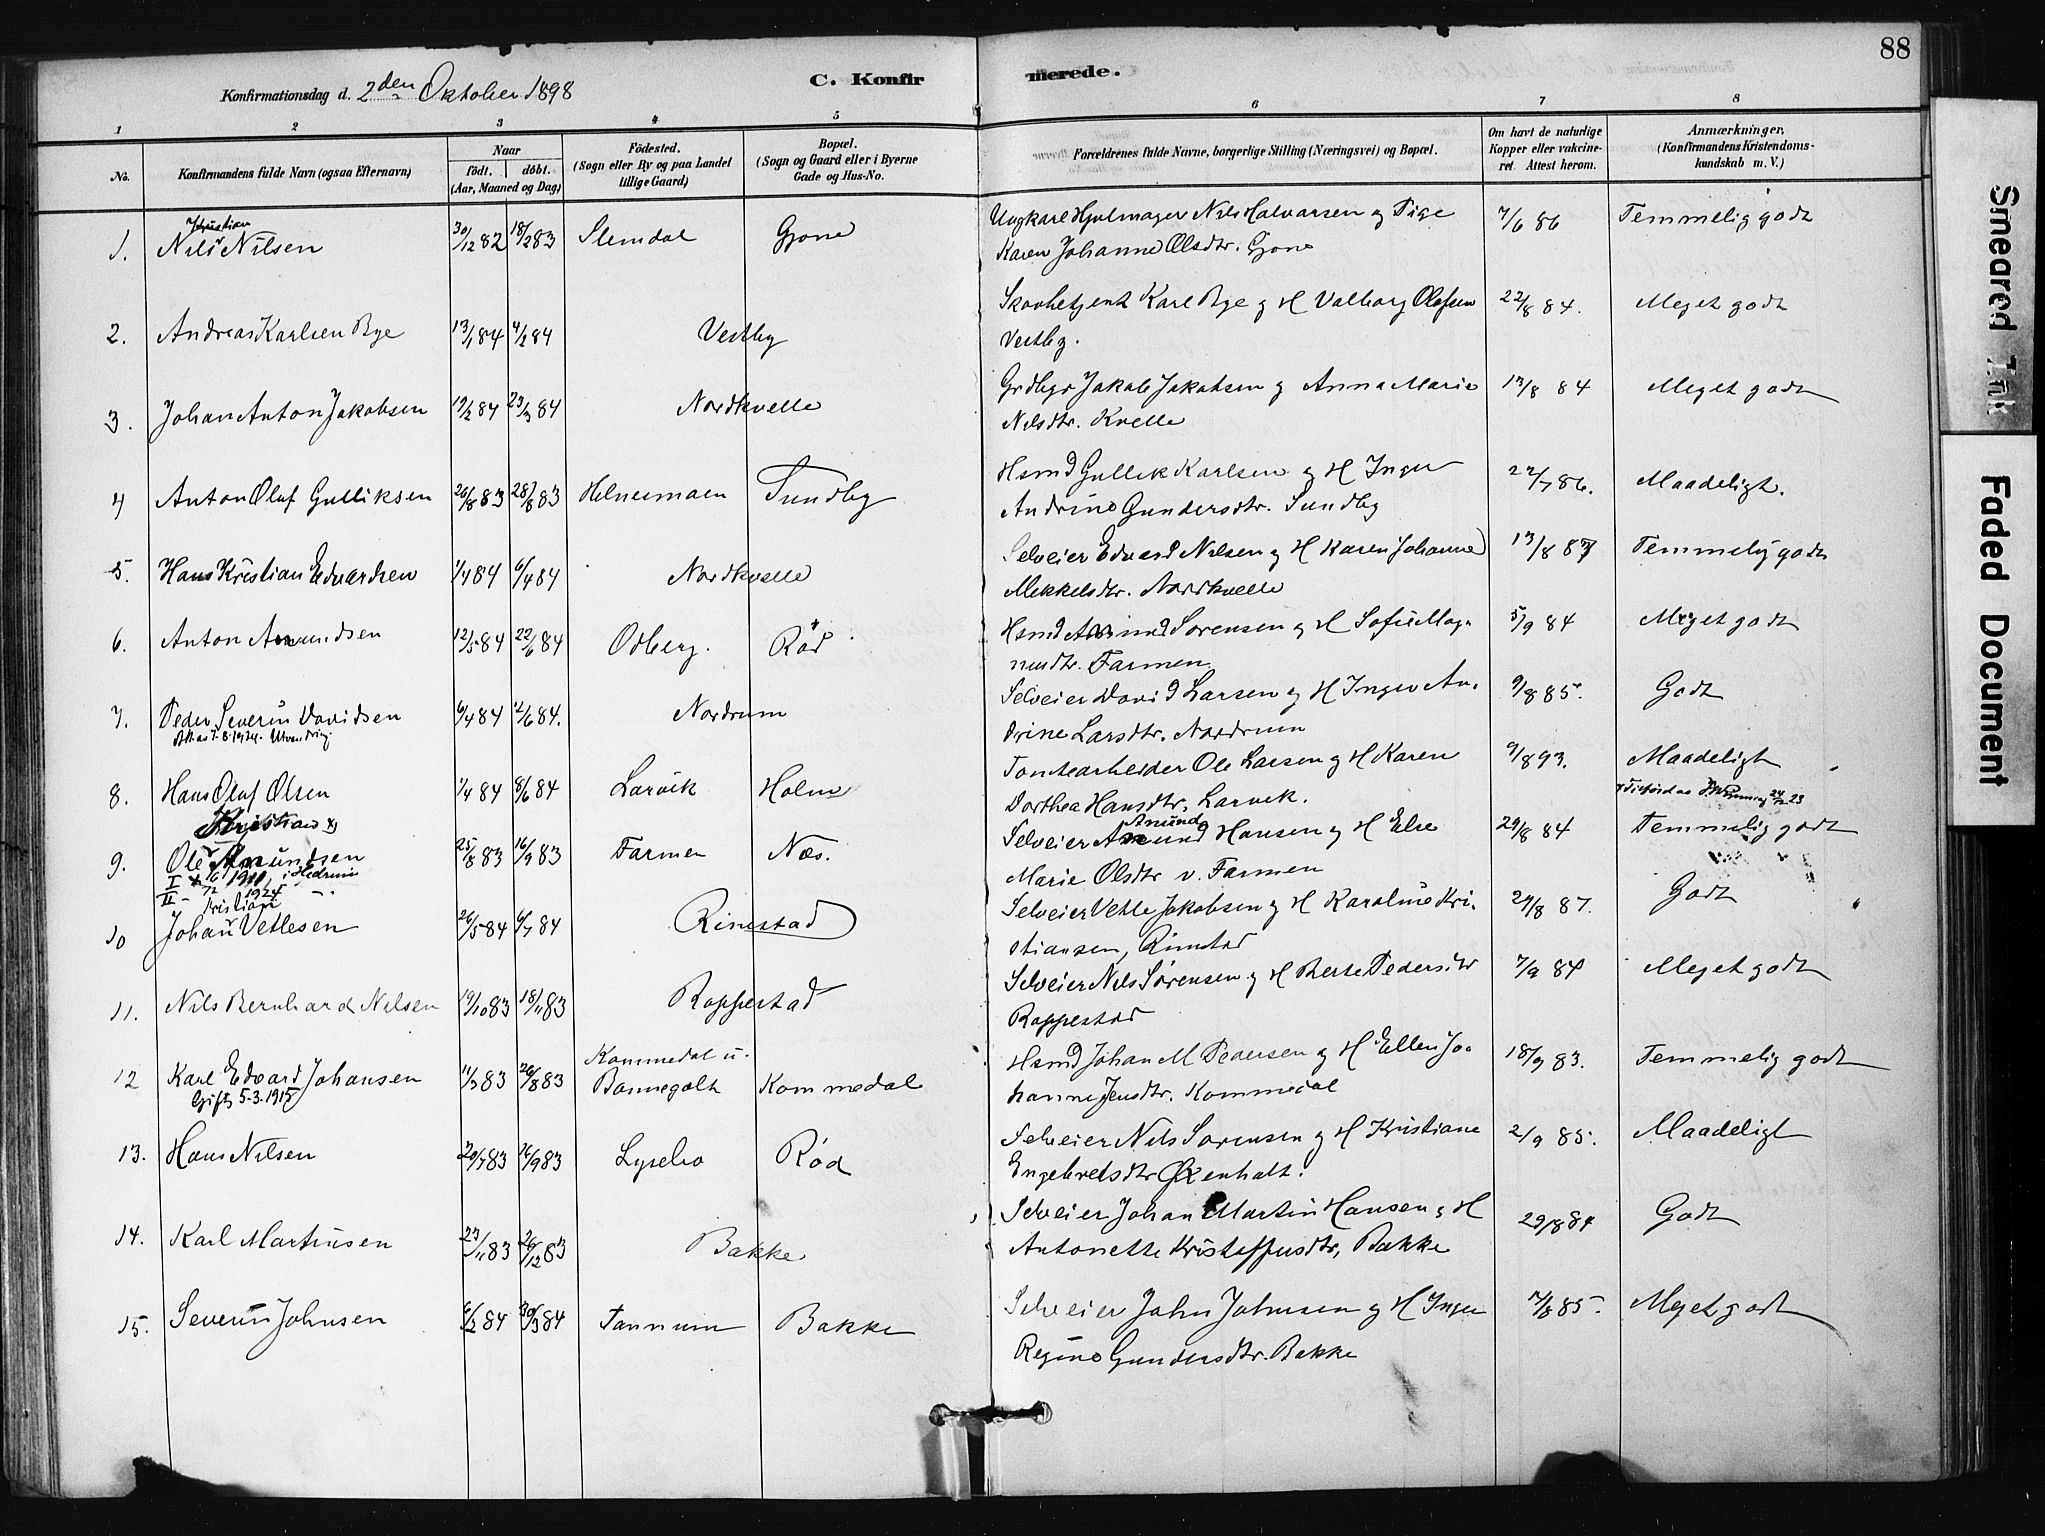 88
Konfirmationsdag d. 2den Oktober 1898
C. Konfirmerede.
1 2 3 4 5 6 7 8
No.
Konfirmandens fulde Navn (ogsaa Efternavn)
Naar
födt. döbt.
(Aar, Maaned og Dag)
Födested.
(Sogn eller By og paa Landet
tillige Gaard)
Bopæl.
(Sogn og Gaard eller i Byerne
Gade og Hus-No.
Forældrenes fulde Navne, borgerlige Stilling (Næringsvei) og Bopæl.
Om havt de naturlige
Kopper eller vakcine-
ret. Attest herom.
Anmærkninger,
(Konfirmandens Kristendoms-
kundskab m. V.)
Kristian
1. Nils Nilsen 30/12 82 18/2 83 Slemdal Gjone Ungkarl Hjulmager Nils Halvorsen og Pige 7/6 86 Temmelig godt
Karen Johanne Olsdtr. Gjone
2. Andreas Karlsen Bye 13/1 84 4/2 84 Vestby Skovbetjent Karl Bye og H Valborg Olafsen 22/8 84. Meget godt
Vestby.
3. Johan Anton Jakobsen 19/2 84 23/3 84 Nordkvelle Grdbgr Jakob Jakobsen og Anna Marie 13/8 84 Meget godt
Nilsdtr. Kvelle
4 Anton Oluf Gulliksen 26/8 83 28/8 83 Helnesmoen Sundby Hsmd Gullik Karlsen og H Inger 22/7 86. Maadeligt.
Andrine Gundersdtr. Sundby
5. Hans Kristian Edvardsen 1/4 84 6/4 84 Nordkvelle Selveier Edvard Nilsen og H Karen Johanne 13/8 87 Temmelig godt
Mekkelsdtr. Nordkvelle
6. Anton Amundsen 12/5 84 22/6 84 Odberg. Rød Hsmd Amund Sorensen og H Sofie Mag-
nusdtr. Farmen 5/9 84 Meget godt
7. Peder Severin Davidsen 6/4 84 2/6 84. Nordrum Selveier David Larsen og H Inger An- 9/8 85. Godt
Att. as 7.8.1924. Utvandring.
drine Larsdtr. Nordrum
8. Hans Oluf Olsen 1/4 84 8/6 84 Larvik Holm Tomtearbeider Ole Larsen og H Karen 9/8 93. Maadeligt
Dorthea Hansdtr. Larvik.
Kristian x)
9. Ole Amundsen 25/8 83 16/9 83 Farmen Næs. Selveier Amund Hansen og H Else 29/8 84 Temmelig godt
Amund
Marie Olsdtr v. Farmen
I 1910, i Hedrum
II 1924
Kristian
10 Johan Vetlesen 26/5 84 6/7 84 Rimstad Selveier Vetle Jakobsen og H Karoline Kri- 29/8 87. Godt
stiansen, Rimstad
11. Nils Bernhard Nilsen 19/10 83 18/11 83 Roppestad Selveier Nils Sørensen og H Berte Pedersdtr 7/9 84 Meget godt
Roppestad
12 Karl Edvard Johansen 11/7 83 26/8 83 Kommedal u.
Bonnegolt Kommedal Hsmd Johan M Pedersen og H Ellen Jo- 18/9 83. Temmelig godt
Gift 5.3.1915
hanne Jensdtr. Kommedal
13. Hans Nilsen 20/7 83 16/9 83 Lysebo Rød Selveier Nils Sorensen og H Kristiane 2/9 85. Maadeligt
Engebretsdtr Øxenholt.
14. Karl Martinsen 23/11 83 26/12 83 Bakke Selveier Johan Martin Hansen og H 29/8 84 Godt
Antonette Kristoffersdtr, Bakke
15. Severin Johnsen 6/2 84 30/3 84 Tannum Bakke Selveier John Johnsen og H Inger 7/8 85. Meget godt
Regine Gundersdtr. Bakke
Smeared Ink
Faded Document